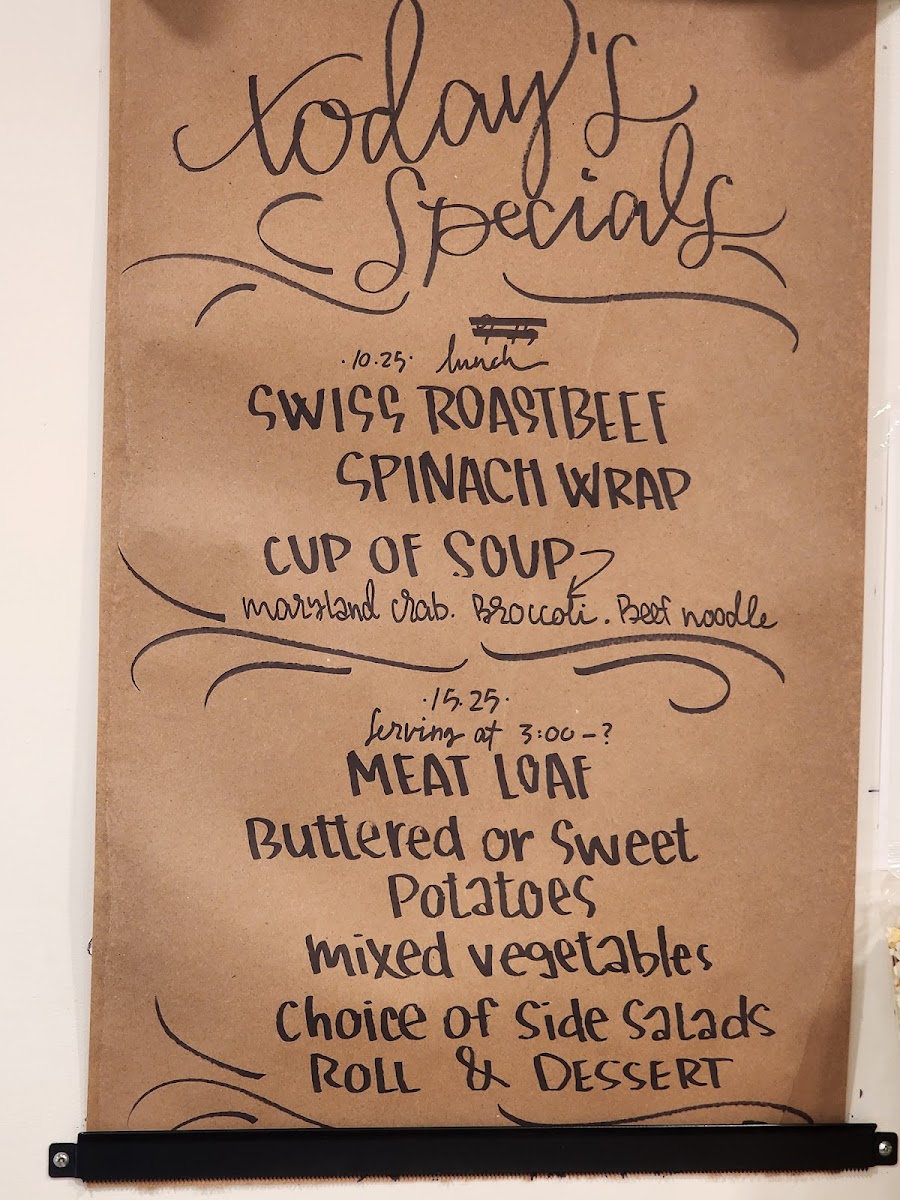 today's
specials
·10.25· lunch
SWISS ROASTBEEF
SPINACH WRAP
CUP OF SOUP
maryland crab. Broccoli. Beef noodle
·15.25·
Serving at 3:00-?
MEAT LOAF
Buttered or Sweet
Potatoes
mixed vegetables
Choice of Side Salads
ROLL & DESSERT